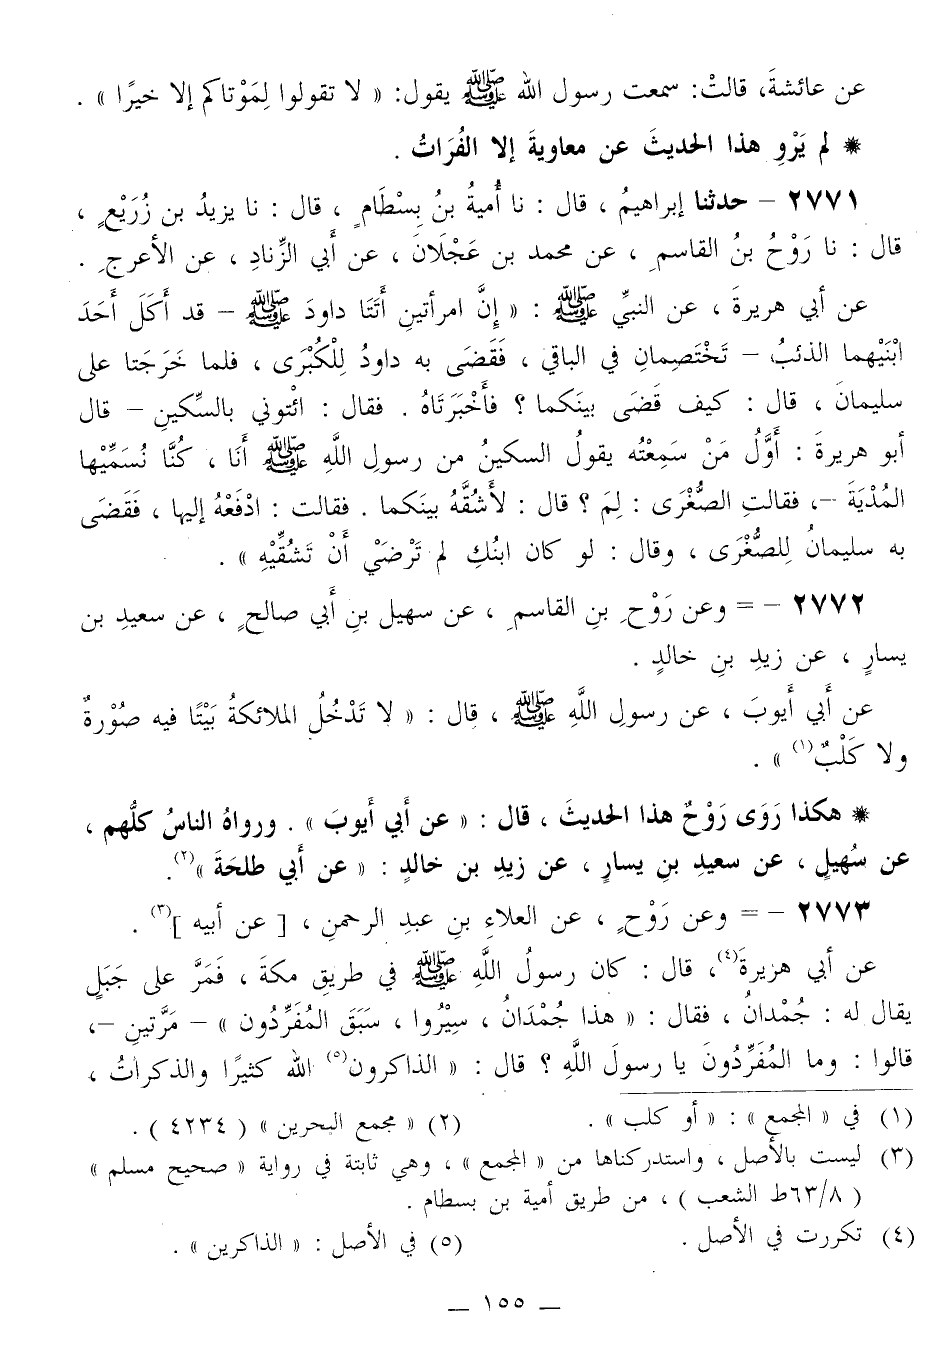 عن عائشةَ، قالتْ: سمعت رسول الله ﷺ يقول: « لا تقولوا لِمَوْتاكم إلا خيرًا » .
* لم يَرْوِ هذا الحديثَ عن معاويةَ إلا الفُرَاتُ .
٢٧٧١ – حدثنا إبراهيمُ ، قال : نا أُميةُ بنُ بِسْطَامٍ ، قال : نا يزيدُ بن زُرَيْعٍ ،
قال : نا رَوْحُ بنُ القاسمِ ، عن محمد بن عَجْلَانَ ، عن أبي الزِّنادِ ، عن الأعرجِ .
عن أبي هريرةَ ، عن النبيِّ ﷺ : « إنَّ امرأتينِ أَتَتَا داودَ ﷺ – قد أَكَلَ أَحَدَ
ابْنَيْهما الذئبُ – تَخْتَصِمانِ في الباقي ، فَقَضَى به داودُ لِلْكُبْرَى ، فلما خَرَجَتا على
سليمانَ ، قال : كيف قَضَى بينَكما ؟ فأَخْبَرَتَاهُ . فقال : ائْتوني بالسِّكينِ – قال
أبو هريرةَ : أوَّلُ مَنْ سَمِعْتُه يقولُ السكينُ من رسولِ اللَّهِ ﷺ أَنَا ، كُنَّا نُسَمِّيْها
المُدْيَةَ –، فقالتِ الصُّغْرَى : لِمَ ؟ قال : لأَشُقَّهُ بينَكما . فقالت : ادْفَعْهُ إليها ، فَقَضَى
به سليمانُ لِلصُّغْرَى ، وقال : لو كان ابنُكِ لم تَرْضَيْ أَنْ تَشُقِّيْهِ » .
٢٧٧٢ – = وعن رَوْحِ بنِ القاسمِ ، عن سهيل بنِ أبي صالحٍ ، عن سعيدِ بن
يسارٍ ، عن زيدِ بنِ خالدٍ .
عن أَبي أَيوبَ ، عن رسولِ اللَّهِ ﷺ ، قال : « لا تَدْخُلُ الملائكةُ بَيْتًا فيه صُوْرةٌ
ولا كَلْبٌ(١) » .
* هكذا رَوَى رَوْحٌ هذا الحديثَ ، قال : « عن أبي أيوبَ » . ورواهُ الناسُ كلُّهم ،
عن سُهيلٍ ، عن سعيدِ بنِ يسارٍ ، عن زيدِ بن خالدٍ : « عن أَبي طلحَةَ »(٢).
٢٧٧٣ – = وعن رَوْحٍ ، عن العلاءِ بنِ عبدِ الرحمنِ ، [ عن أبيه ](٣) .
عن أبي هزيرةَ(٤)، قال : كان رسولُ اللَّهِ ﷺ في طريقِ مكةَ ، فَمَرَّ على جَبَلٍ
يقال له : جُمْدانُ ، فقال : « هذا جُمْدَانُ ، سِيْرُوا ، سَبَقَ المُفَرِّدُون » – مَرَّتينِ –،
قالوا : وما المُفَرِّدُونَ يا رسولَ اللَّهِ ؟ قال : « الذاكرون(٥) الله كثيرًا والذكراتُ ،
(١) في « المجمع » : « أو كلب » .
(٢) « مجمع البحرين » ( ٤٢٣٤ ) .
(٣) ليست بالأصل ، واستدركناها من « المجمع » ، وهي ثابتة في رواية « صحيح مسلم »
( ٦٣/٨ط الشعب ) ، من طريق أمية بن بسطام .
(٤) تكررت في الأصل .
(٥) في الأصل : « الذاكرين » .
– ١٥٥ –